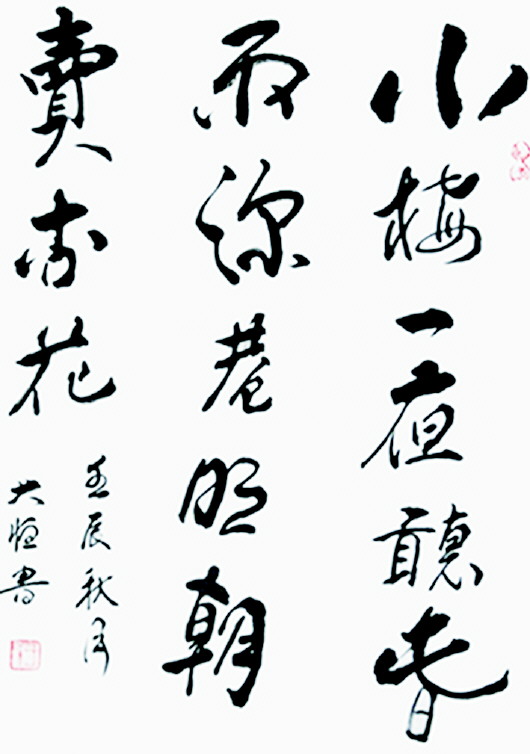 小樓一夜聽春
雨深巷明朝
賣杏花
壬辰秋月
大恒書